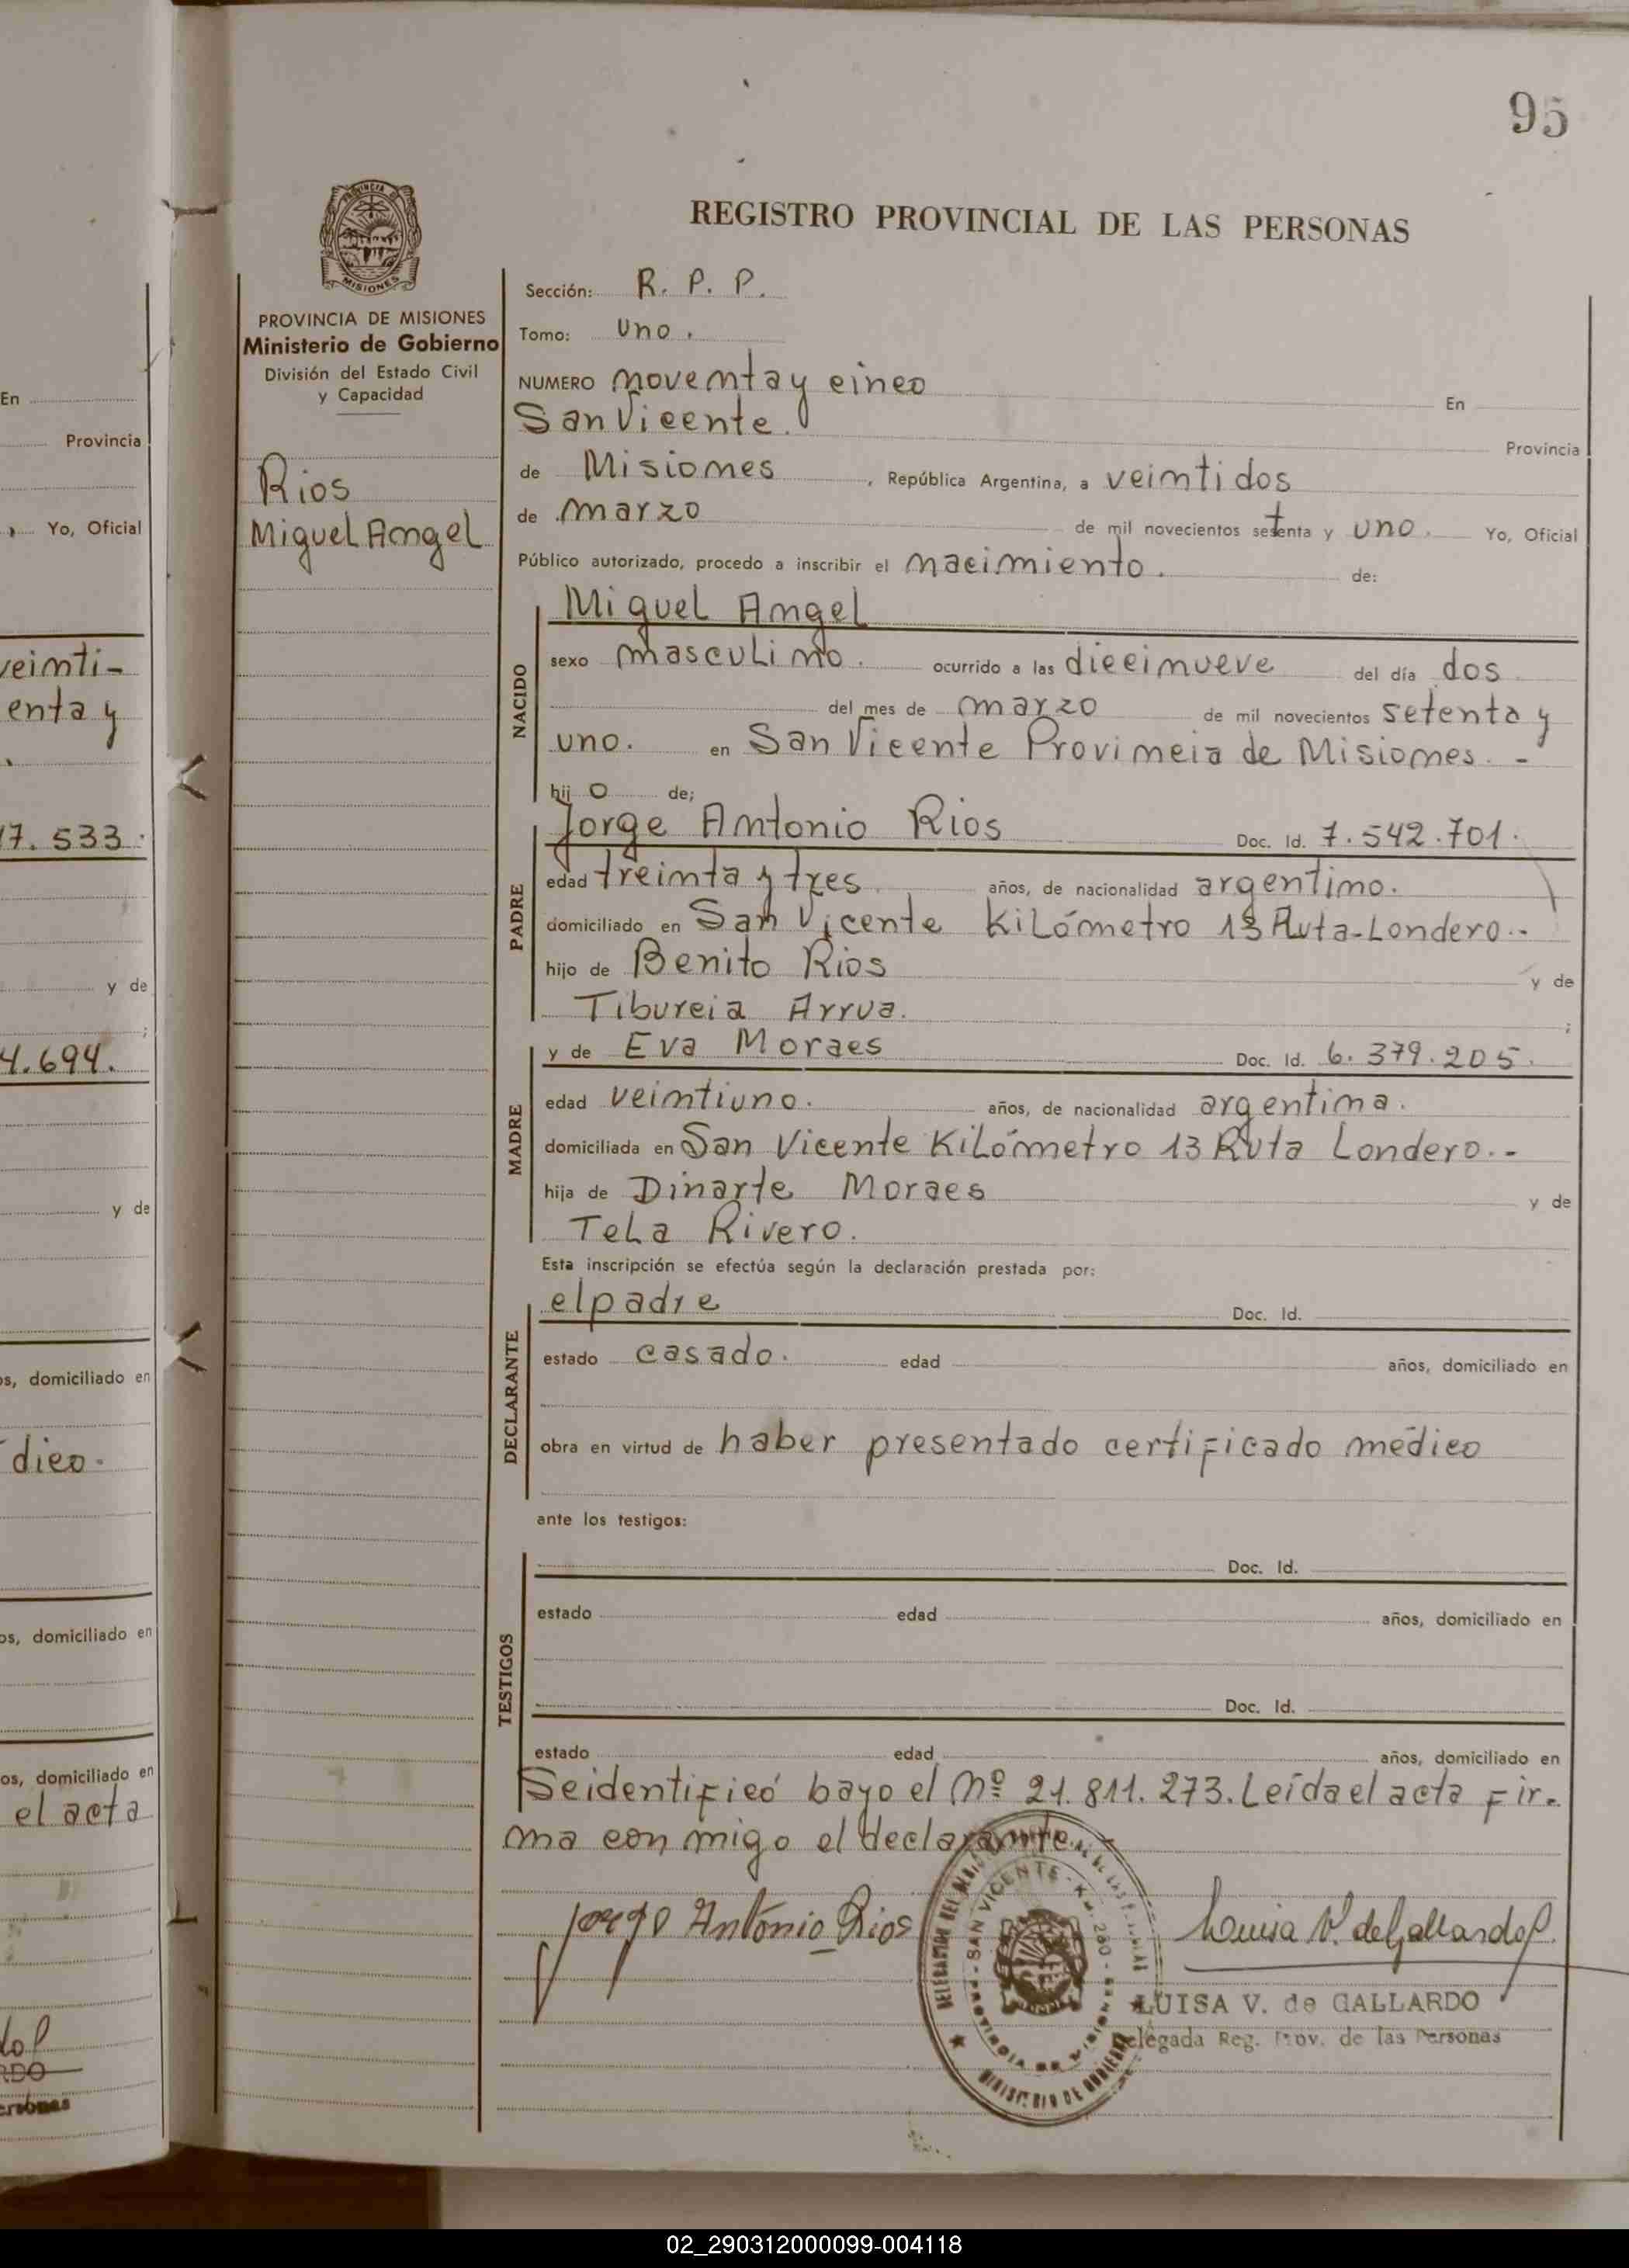 95
REGISTRO PROVINCIAL DE LAS PERSONAS
MISIONES
PROVINCIA DE MISIONES
Ministerio de Gobierno
División del Estado Civil
y Capacidad
Rios
Miguel Angel
Sección: R. P. P.
Tomo: uno.
NUMERO noventa y cinco En
San Vicente. Provincia
de Misiones, República Argentina, a veintidos
de marzo de mil novecientos setenta y uno. Yo, Oficial
Público autorizado, procedo a inscribir el nacimiento. de:
NACIDO
Miguel Angel
sexo masculino. ocurrido a las diecinueve del día dos
del mes de marzo de mil novecientos setenta y
uno. en San Vicente Provincia de Misiones. -
hijo de;
PADRE
Jorge Antonio Rios Doc. Id. 7.542.701.
edad treinta y tres años, de nacionalidad argentino.
domiciliado en San Vicente Kilómetro 13 Ruta-Londero.-
hijo de Benito Rios y de
Tiburcia Arrua. ;
MADRE
y de Eva Moraes Doc. Id. 6.379.205.
edad veintiuno. años, de nacionalidad argentina.
domiciliada en San Vicente Kilómetro 13 Ruta Londero.-
hija de Dinarte Moraes y de
Tela Rivero.
Esta inscripción se efectúa según la declaración prestada por:
DECLARANTE
el padre Doc. Id.
estado casado. edad años, domiciliado en
obra en virtud de haber presentado certificado médico
ante los testigos:
TESTIGOS
Doc. Id.
estado edad años, domiciliado en
Doc. Id.
estado edad años, domiciliado en
Se identificó bayo el Nº 21.811.273. Leída el acta fir-
ma con migo el declarante.
Jorge Antonio Rios
Luisa V. de Gallardo
SAN VICENTE
MINISTERIO DE GOBIERNO
LUISA V. de GALLARDO
Delegada Reg. Prov. de las Personas
En
Provincia
Yo, Oficial
veinti-
enta y
17.533.
y de
;
4.694.
y de
os, domiciliado en
dico.
os, domiciliado en
os, domiciliado en
el acta
RDO
ersonas
02_290312000099-004118